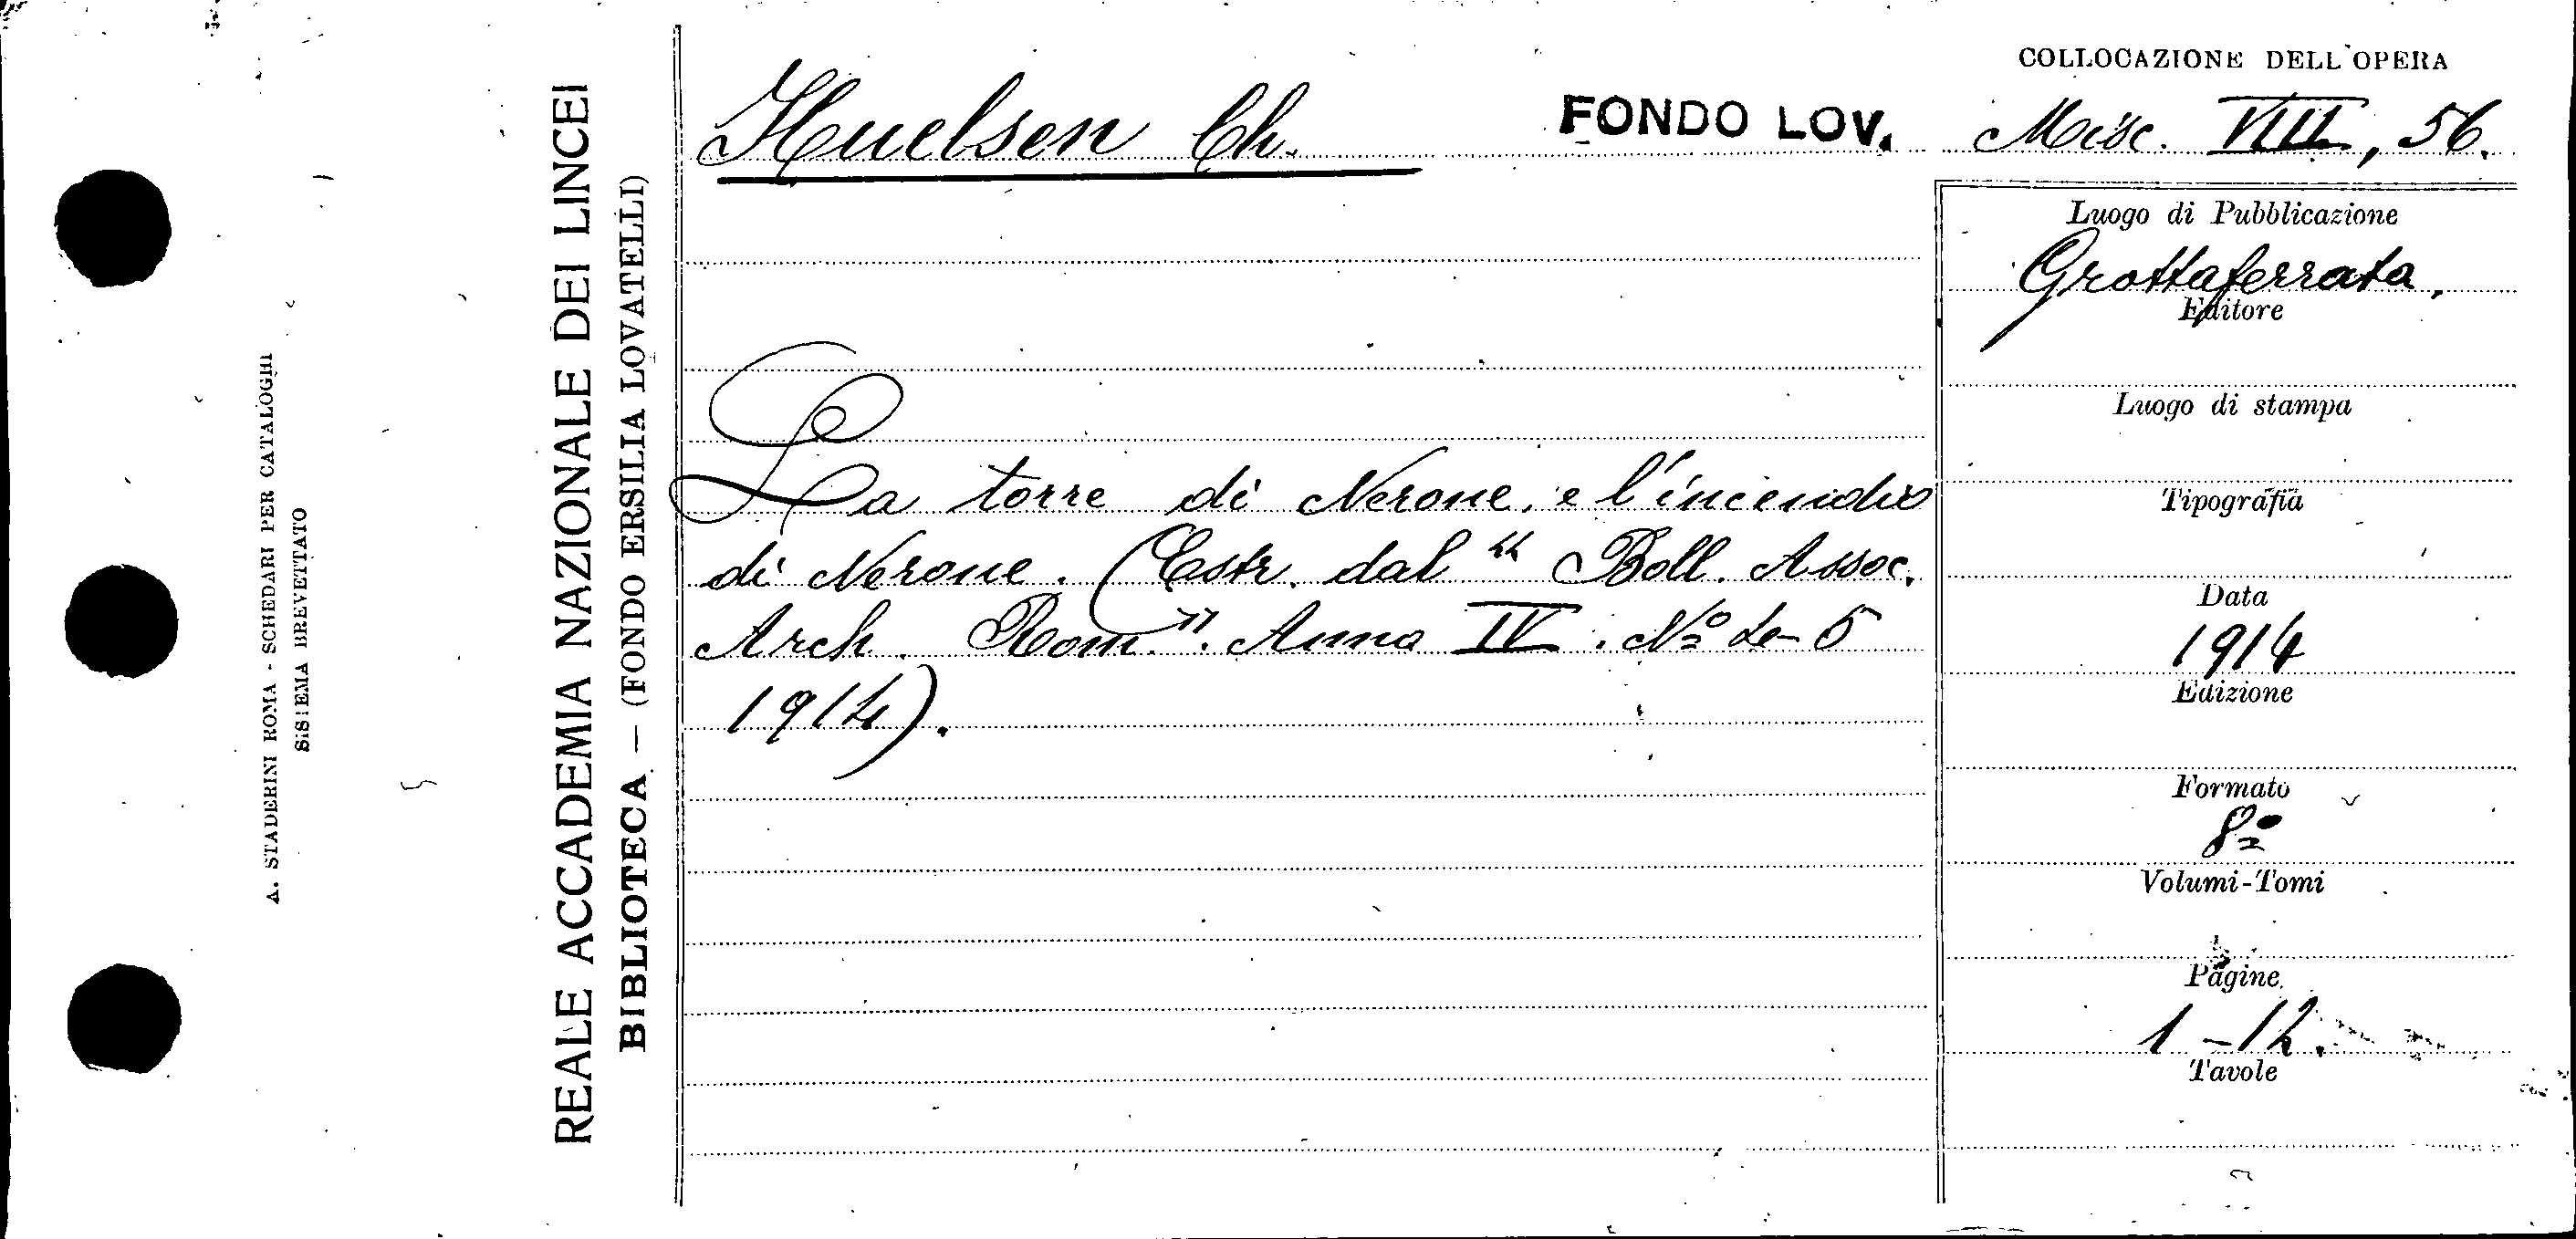 A. STADERINI ROMA - SCHEDARI PER CATALOGHI
SISTEMA BREVETTATO
REALE ACCADEMIA NAZIONALE DEI LINCEI
BIBLIOTECA — (FONDO ERSILIA LOVATELLI)
Huelsen Ch.
FONDO LOV.
COLLOCAZIONE DELL'OPERA
Misc. VIII, 56.
La torre di Nerone e l'incendio
di Nerone. (Estr. dal "Boll. Assoc.
Arch. Rom.". Anno IV. Nº 4-5
1914).
Luogo di Pubblicazione
Grottaferrata,
Editore
Luogo di stampa
Tipografia
Data
1914
Edizione
Formato
8º
Volumi-Tomi
Pagine
1-12.
Tavole